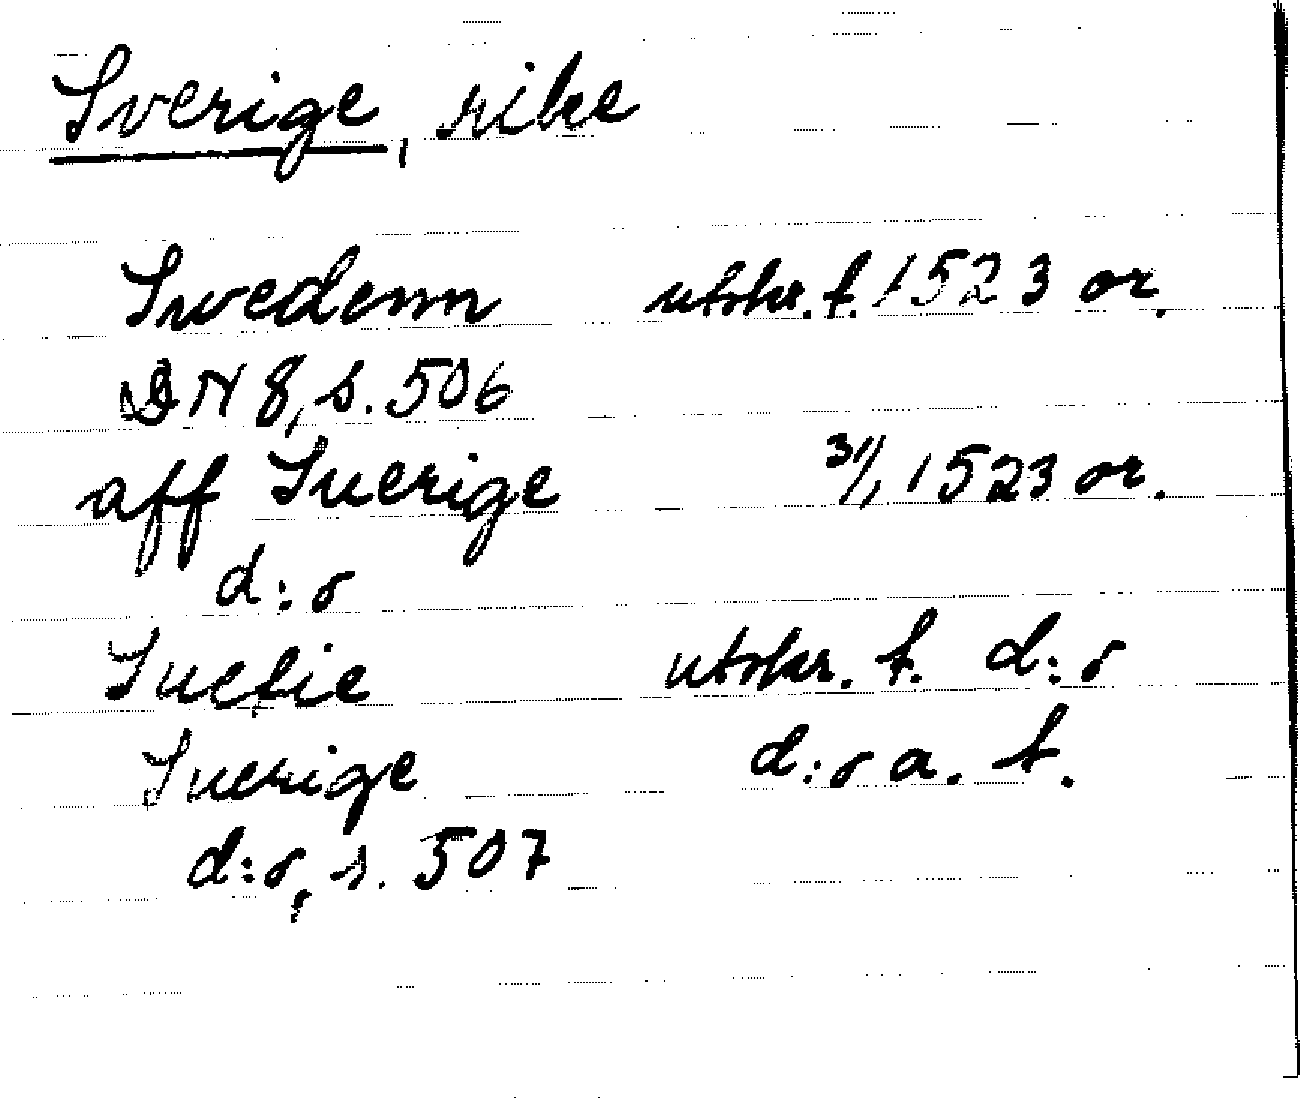 Sverige, rike
Swedenn utskr. f. 1523 or.
DN 8, s. 506
aff Suerige 3/1 1523 or.
d:o
Suetie utskr. f. d:o
Suerige d:o a. f.
d:o, s. 507